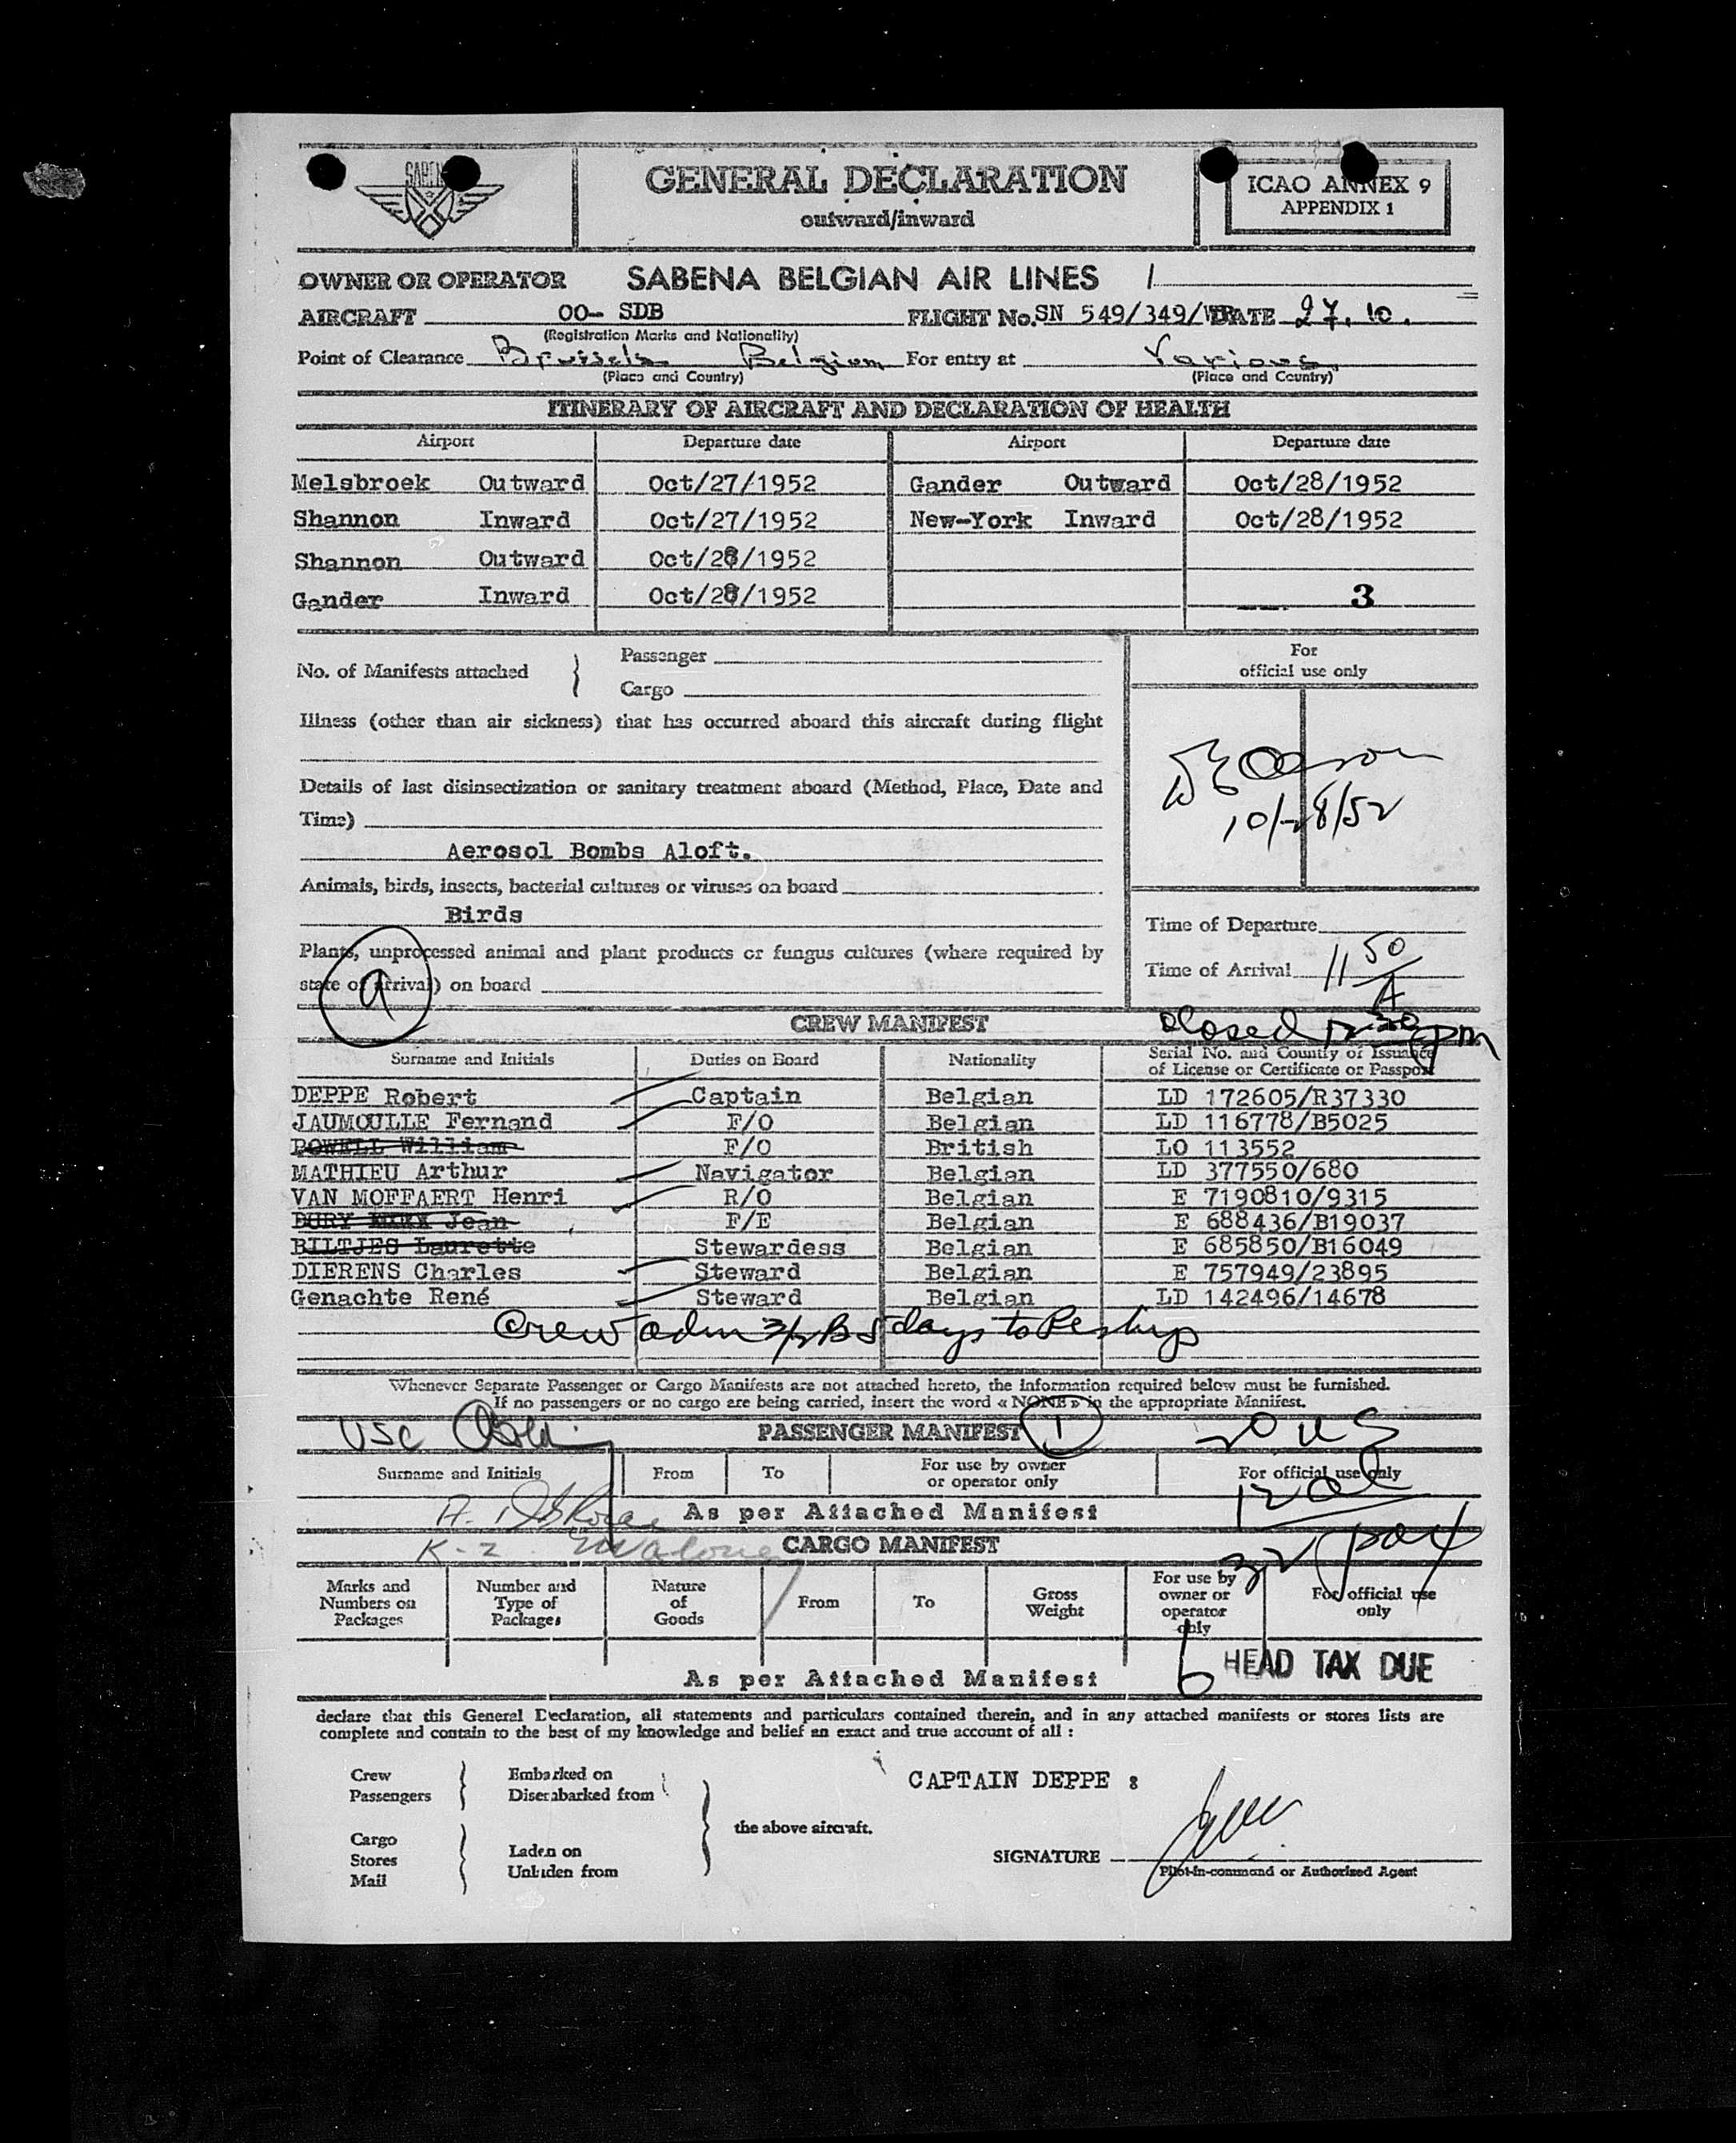 SABENA
GENERAL DECLARATION
outward/inward
ICAO ANNEX 9
APPENDIX 1
OWNER OR OPERATOR SABENA BELGIAN AIR LINES /
AIRCRAFT OO- SDB FLIGHT No. SN 549/349/ DATE 27. 10.
(Registration Marks and Nationality)
Point of Clearance Brussels Belgium For entry at Various
(Place and Country) (Place and Country)
ITINERARY OF AIRCRAFT AND DECLARATION OF HEALTH
Airport Departure date Airport Departure date
Melsbroek Outward Oct/27/1952 Gander Outward Oct/28/1952
Shannon Inward Oct/27/1952 New-York Inward Oct/28/1952
Shannon Outward Oct/28/1952
Gander Inward Oct/28/1952
3
No. of Manifests attached
Passenger
Cargo
For
official use only
Illness (other than air sickness) that has occurred aboard this aircraft during flight
Details of last disinsectization or sanitary treatment aboard (Method, Place, Date and
Time)
10/28/52
Aerosol Bombs Aloft.
Animals, birds, insects, bacterial cultures or viruses on board
Birds
Plants, unprocessed animal and plant products or fungus cultures (where required by
state of arrival) on board
a
Time of Departure
Time of Arrival 11 50 A
CREW MANIFEST
closed 12 30 pm
Surname and Initials Duties on Board Nationality Serial No. and Country of Issuance
of License or Certificate or Passport
DEPPE Robert Captain Belgian LD 172605/R37330
JAUMOULLE Fernand F/O Belgian LD 116778/B5025
POWELL William F/O British LO 113552
MATHIEU Arthur Navigator Belgian LD 377550/680
VAN MOFFAERT Henri R/O Belgian E 7190810/9315
BURY Jean F/E Belgian E 688436/B19037
BILTJES Laurette Stewardess Belgian E 685850/B16049
DIERENS Charles Steward Belgian E 757949/23895
Genachte René Steward Belgian LD 142496/14678
Crew adm 3/2 B 5 days to Reship
Whenever Separate Passenger or Cargo Manifests are not attached hereto, the information required below must be furnished.
If no passengers or no cargo are being carried, insert the word « NONE » in the appropriate Manifest.
USC
PASSENGER MANIFEST 1
20 US
Surname and Initials From To For use by owner
or operator only For official use only
12 al
As per Attached Manifest
K-2 Malone
CARGO MANIFEST
32 pax
Marks and
Numbers on
Packages
Number and
Type of
Packages
Nature
of
Goods
From
To
Gross
Weight
For use by
owner or
operator
only
For official use
only
6 HEAD TAX DUE
As per Attached Manifest
declare that this General Declaration, all statements and particulars contained therein, and in any attached manifests or stores lists are
complete and contain to the best of my knowledge and belief an exact and true account of all :
Crew
Passengers
Embarked on
Disembarked from
Cargo
Stores
Mail
Laden on
Unladen from
the above aircraft.
CAPTAIN DEPPE :
SIGNATURE
Pilot-in-command or Authorized Agent